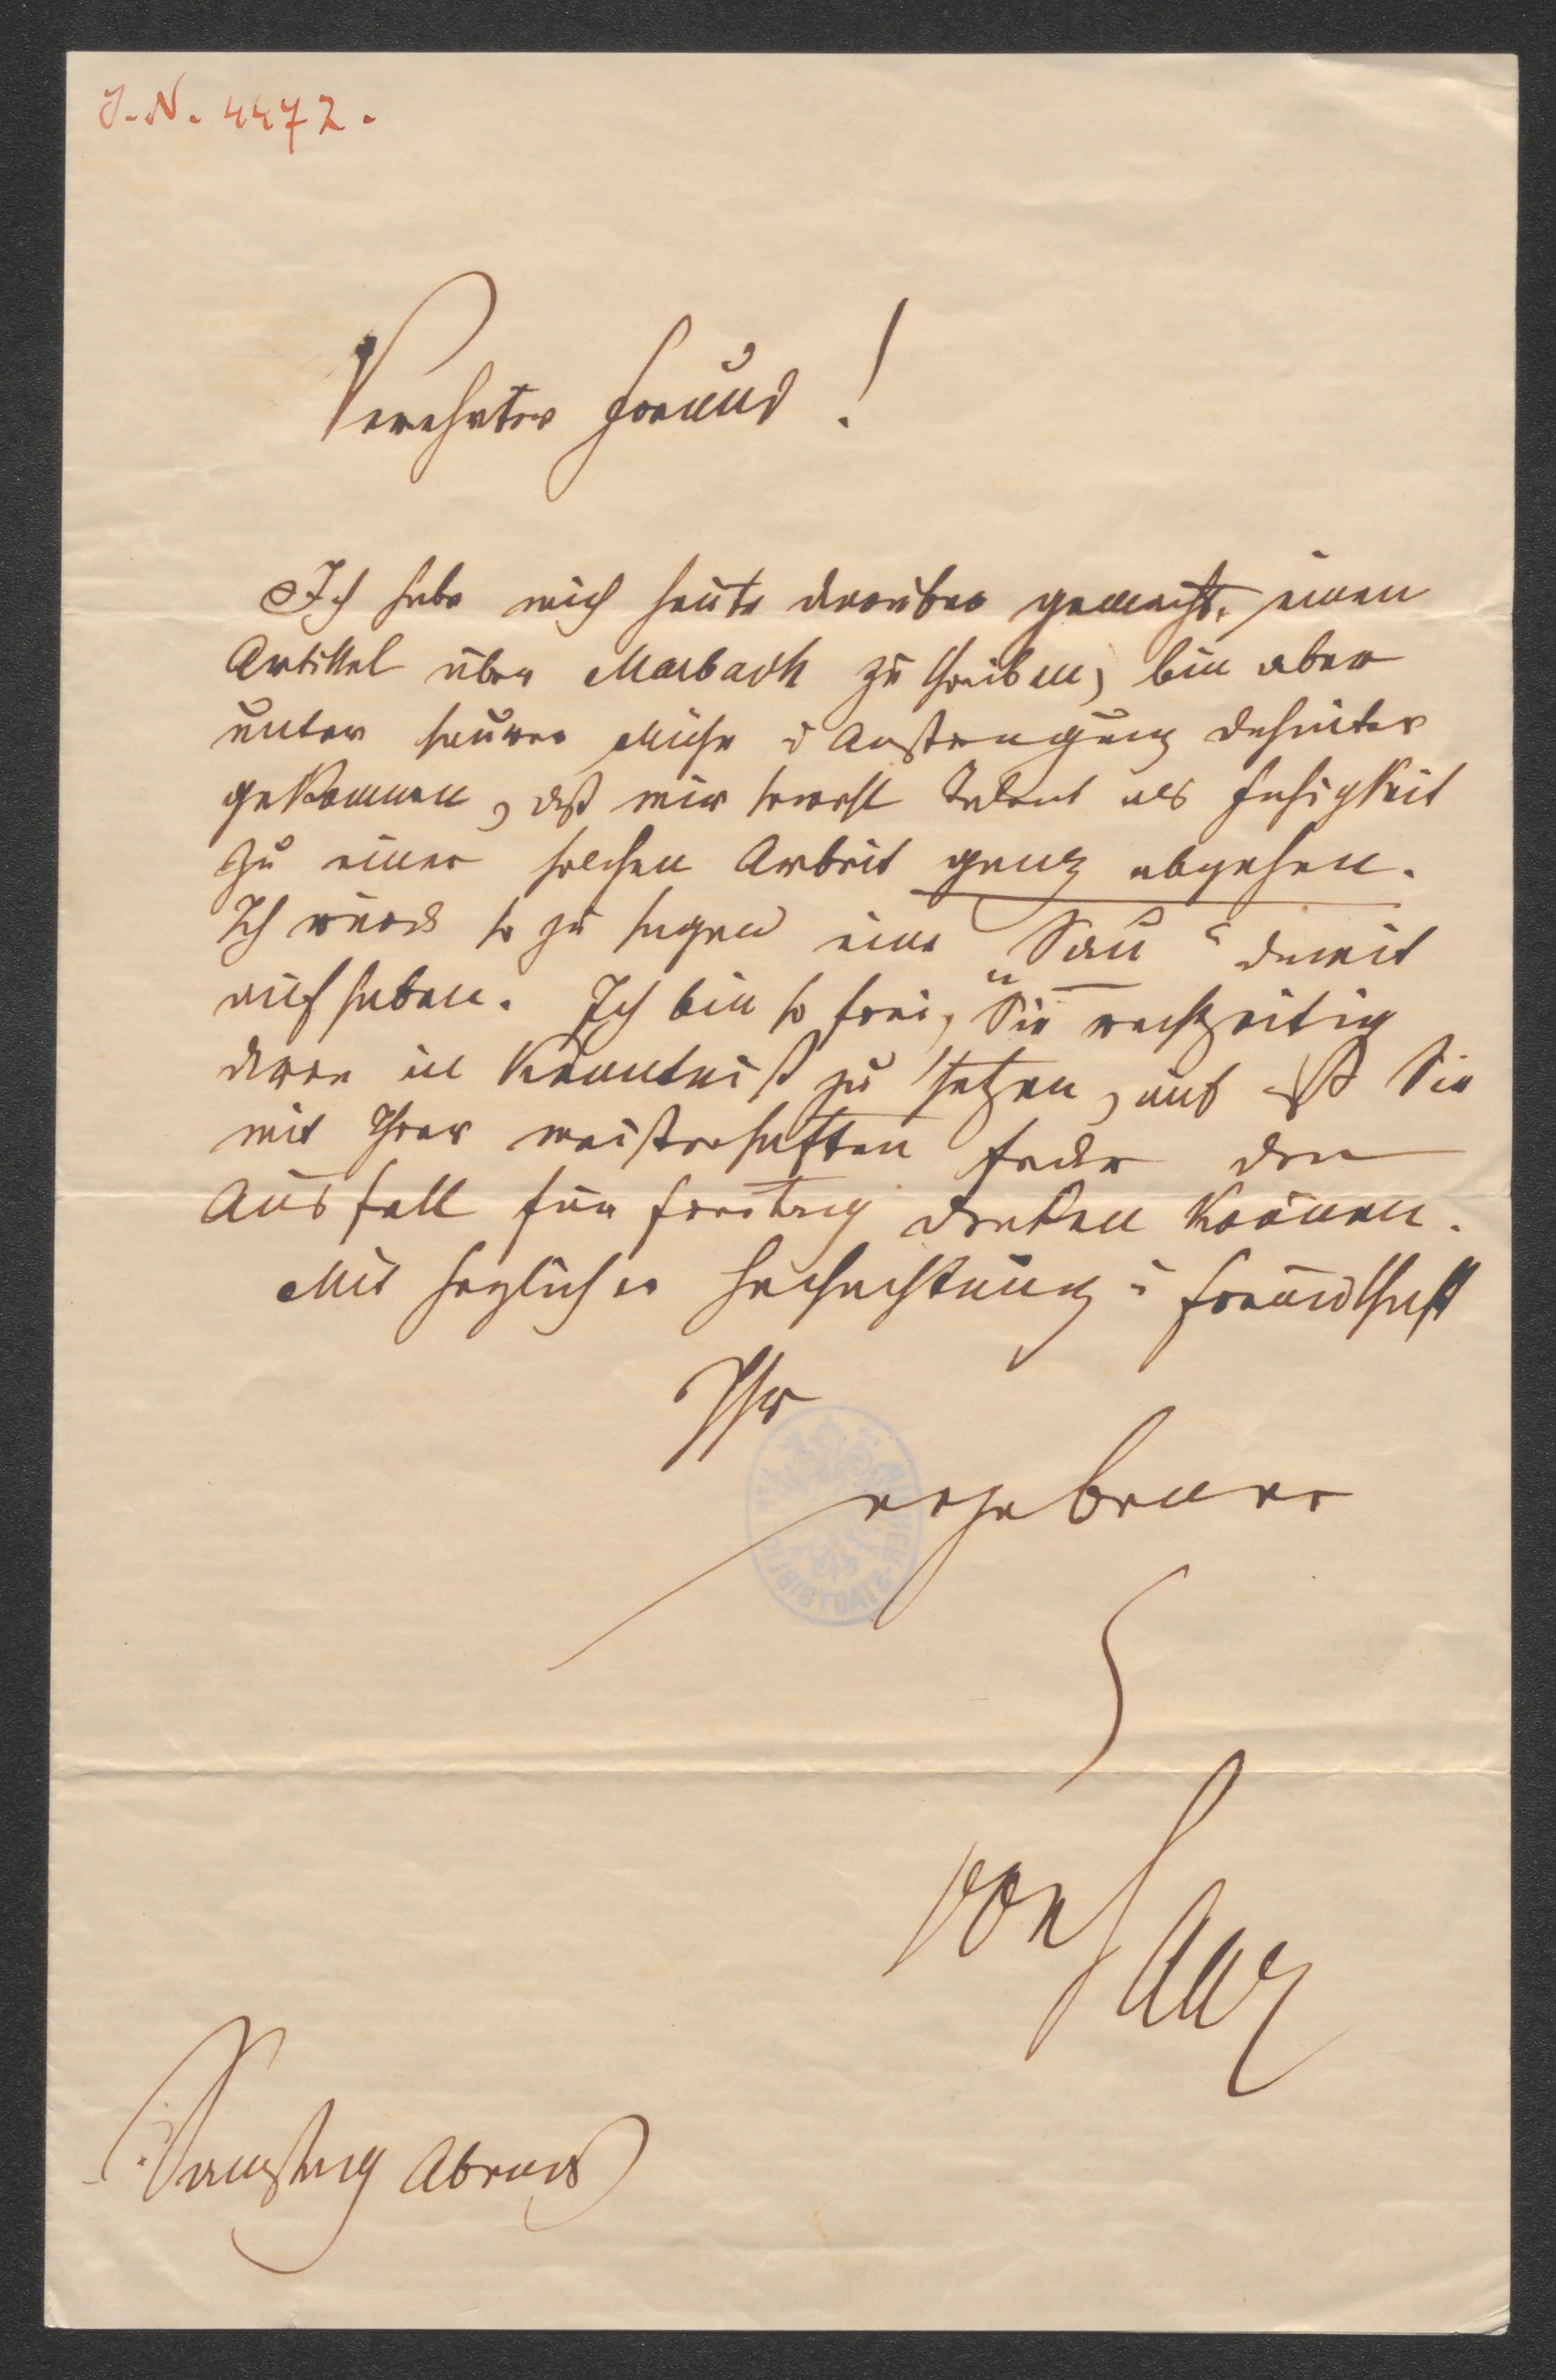 J.-N. 4472.
Verehrter Freund!
Ich habe mich heute darüber gemacht, einen
Artikel über Marbach zu schreiben, bin aber
unter saurer Mühe u Anstrengung dahinter
gekommen, daß mir sowohl Talent als Fähigkeit
zu einer solchen Arbeit ganz abgehen.
Ich würde so zu sagen eine „Sau“ damit
aufheben. Ich bin so frei, Sie rechtzeitig
davon in Kenntniß zu setzen, auf daß Sie
mit Ihrer meisterhaften Feder den
Ausfall für Freitag decken können.
Mit herzlicher Hochachtung u Freundschaft
Ihr
ergebener
von Saar
Samstag Abends